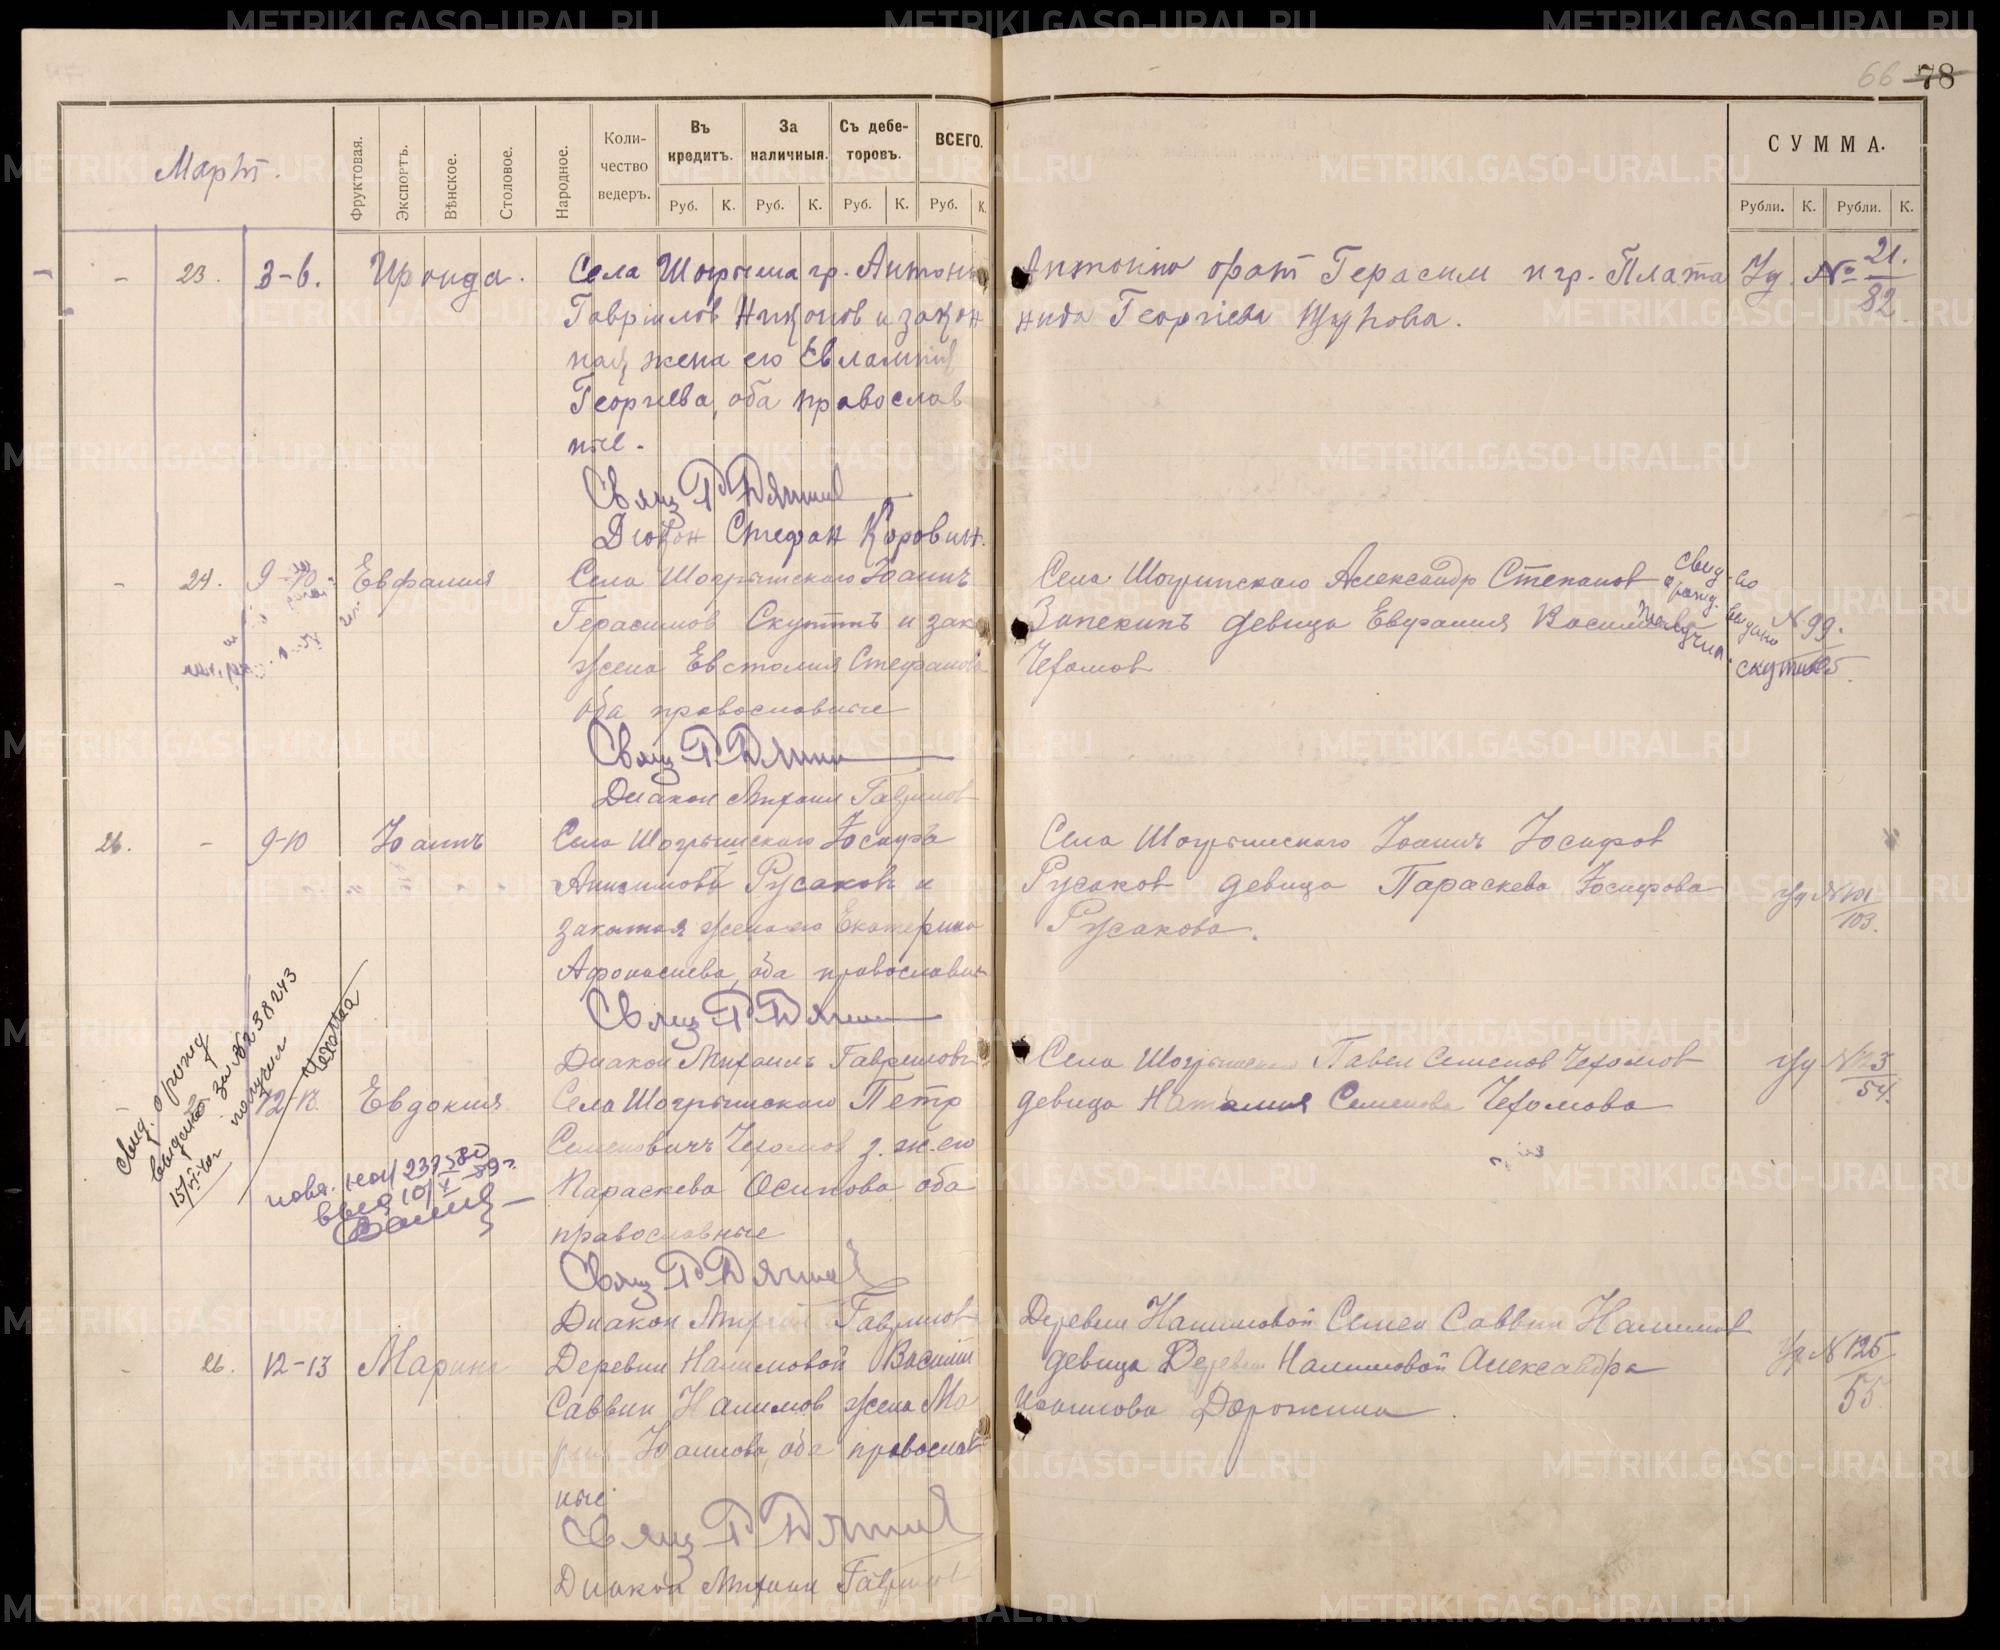 66 78
Мартъ.
Фруктовая.
Экспортъ.
Вѣнское.
Столовое.
Народное.
Коли-
чество
ведеръ.
Въ
кредитъ.
За
наличныя.
Съ дебе-
торовъ.
ВСЕГО.
Руб. К. Руб. К. Руб. К. Руб. К.
СУММА.
Рубли. К. Рубли. К.
- 23. 3-6. Ироида. Села Шогрыша гр. Антоній
Гавріилов Никонов и закон
ная жена его Евлампія
Георгіева, оба православ
ные.
Свящ
Диакон Стефан Коровин.
Антонію брат Герасим и гр. Плата Уд. № 21.
нида Георгіева Щукова. 82
- 24. 9-10. Евфалия Села Шогрышского Іоаннъ
Герасимов Скутинъ и зак
жена Евстолия Стефанова
оба православные
Свящ
Диакон Михаил Гаврилов
Села Шогрышского Александр Степанов
Запекинъ девица Евфалия
Чехомов
Свид-во
о рожд.
выдано
получил
Скутин
N 99.
26. - 9-10 Іоаннъ Села Шогрышского Іосифъ
Анисимовъ Русаков и
законная жена его Екатерина
Афонасиева, оба православн
Свящ
Диакон Михаилъ Гаврилов
Села Шогрышского Іоаннъ Іосифов
Русаков девица Параскева Іосифова
Русакова.
Уд N 101
103.
12-13. Евдокия Села Шогрышского Петр
Семеновичъ Чехомов з. ж. его
Параскева Осипова оба
православные
Свящ
Диакон Гаврилов
Села Павел Семенов Чехомов
девица Наталия Семенова Чехомова
Уд N 113
54.
Свид. о рожд
выдано за № 238243
получил
Чехомова
повт.
237580
выд 10/X-59г.
- 26. 12-13 Марина Деревни Налимовой Василий
Саввин Налимов жена Ма
рия Іоаннова, оба православ
ные
Свящ
Диакон Михаил Гаврилов
Деревни Налимовой Семен Саввин Налимов
девица Деревни Налимовой Александра
Дорожкина.
Уд N 125
55
METRIKI.GASO-URAL.RU